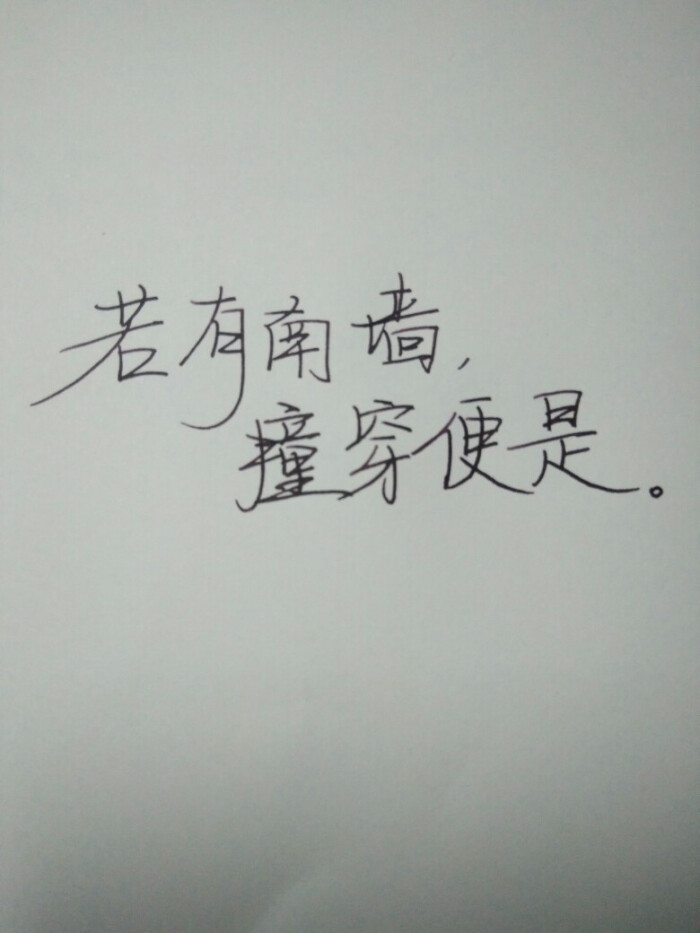 若有南墙,
撞穿便是。